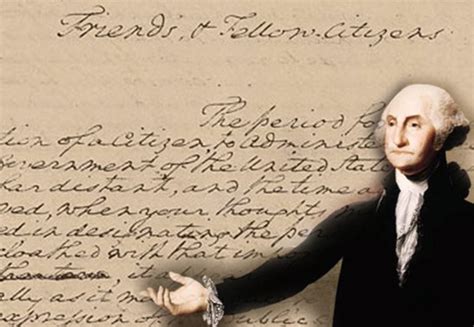 Friends, & Fellow-Citizens
The period fo
tion of a Citizen, to Administe
vernment of the United State
far distant, and the time a
ved, when your thoughts m
ed in designating the per
cloathed with that impor
it a
lly as it ma
public